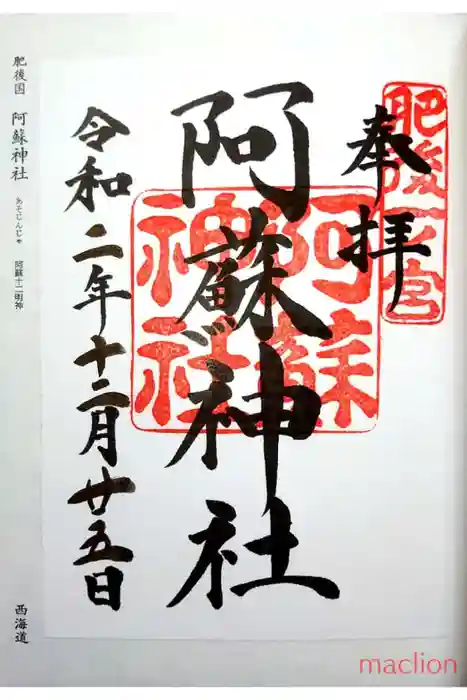 奉拝
肥後一宮
阿蘇神社
阿蘇神社
令和二年十二月廿五日
肥後国 阿蘇神社 あそじんじゃ 阿蘇十二明神
西海道
maclion